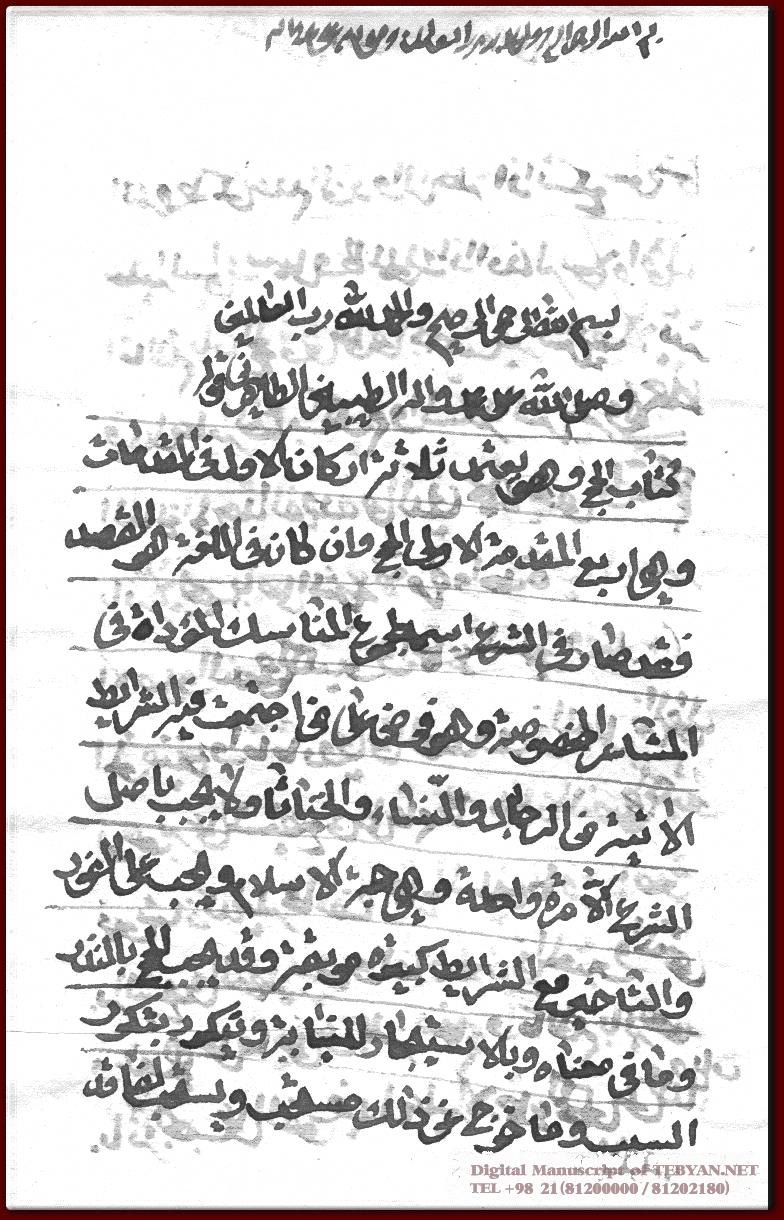 بسم الله الرحمن الرحيم والحمد لله رب العالمين
وصلى الله على محمد واله الطيبين الطاهرين
كتاب الحج وهو يعتمد ثلاثة اركان الاول في المقدمات
وهي اربع المقدمة الاولى الحج وان كان في اللغة هو القصد
فقد صار في الشرع اسما لمجموع المناسك المؤداة في
المشاعر المخصوصة وهو فرض على من اجتمعت فيه الشرايط
الاتية من الرجال والنساء والخناثا ولا يجب باصل
الشرع الا مرة واحدة وهي حجة الاسلام ويجب على الفور
والتاخير مع الشرايط كبيرة موبقة وقد يجب الحج بالنذر
وما في معناه وبالاستيجار للنيابة ويتكرر بتكرر
السبب وما خرج عن ذلك مستحب ويستحب لفاقد
Digital Manuscript of TEBYAN.NET
TEL +98 21(81200000 / 81202180)